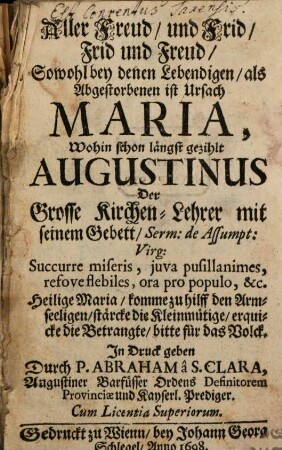 Conventus Taxensis.
Aller Freud/ und Frid/
Frid und Freud/
Sowohl bey denen Lebendigen/ als
Abgestorbenen ist Ursach
MARIA,
Wohin schon längst gezihlt
AUGUSTINUS
Der
Grosse Kirchen-Lehrer mit
seinem Gebett/ Serm: de Assumpt:
Virg:
Succurre miseris, juva pusillanimes,
refove flebiles, ora pro populo, &c.
Heilige Maria/ komme zu hilff den Arm-
seeligen/ stärcke die Kleinmütige/ erqui-
cke die Betrangte/ bitte für das Volck.
In Druck geben
Durch P. ABRAHAM â S. CLARA,
Augustiner Barfüsser Ordens Definitorem
Provinciæ und Kayserl. Prediger.
Cum Licentia Superiorum.
Gedruckt zu Wienn/ bey Johann Georg
Schlegel/ Anno 1698.